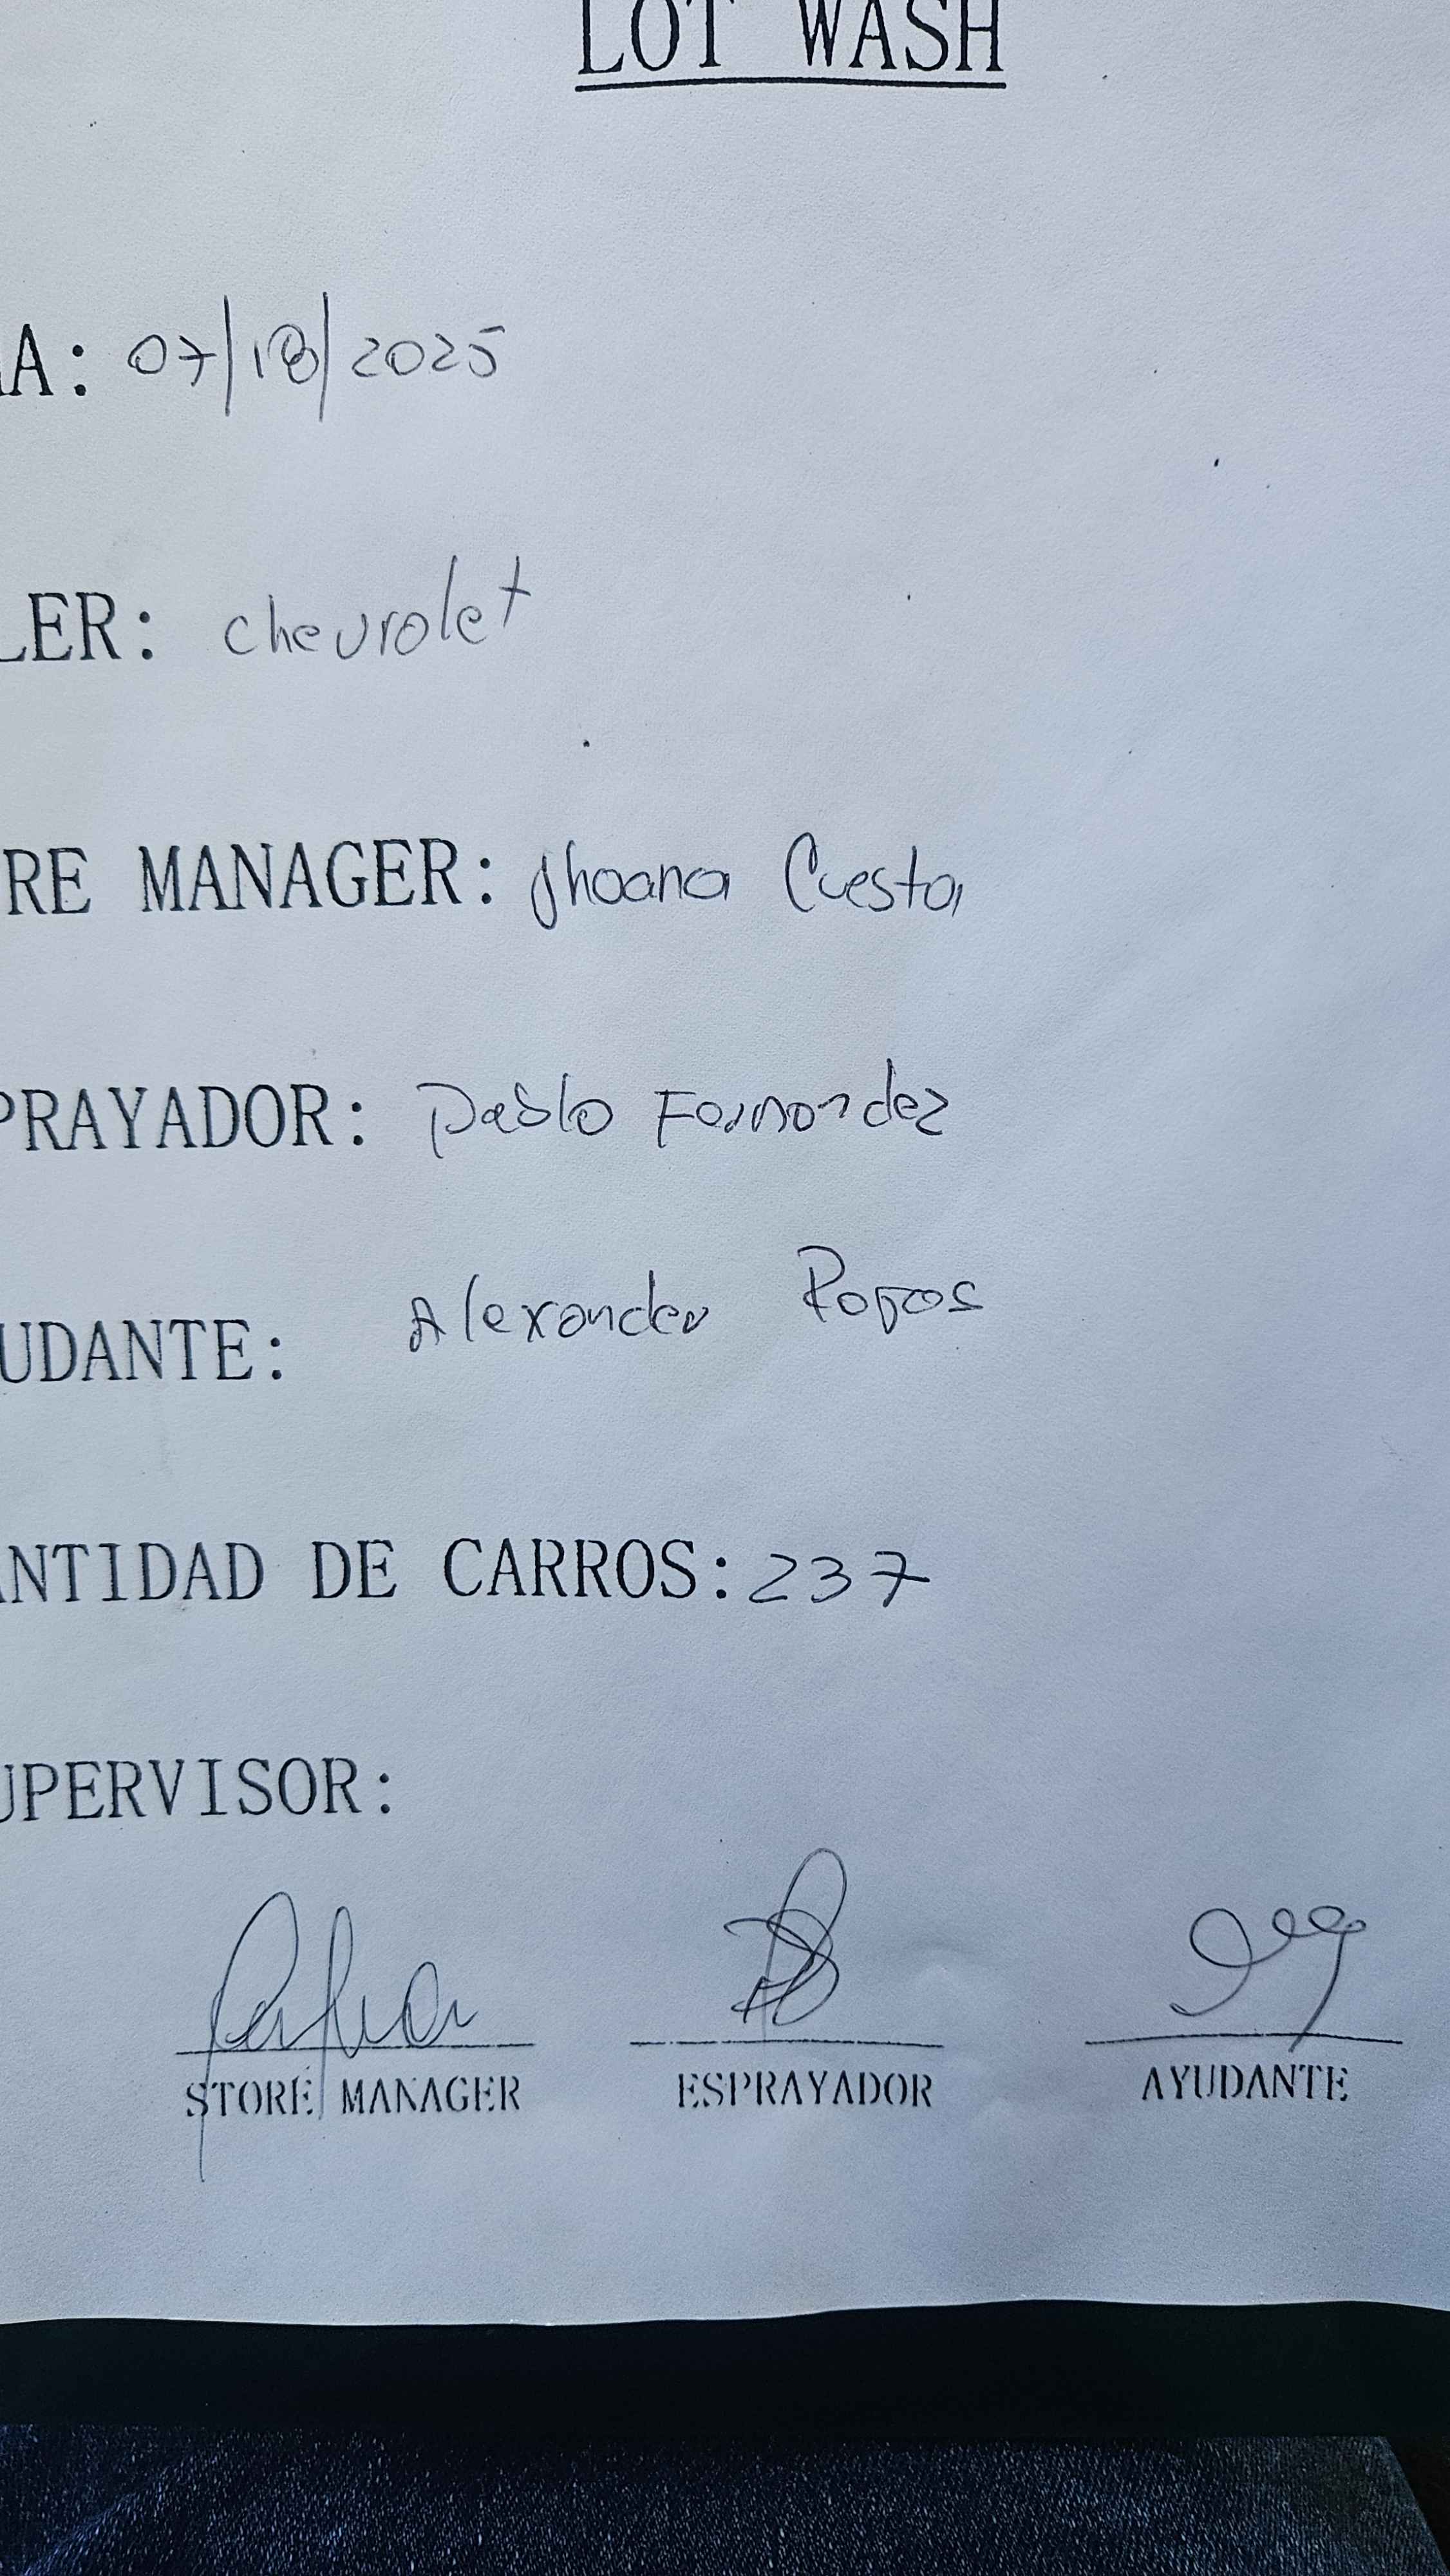 LOT WASH
A: 07/18/2025
LER: chevrolet
RE MANAGER: Jhoana Cuesta
PRAYADOR: Pablo Fernandez
UDANTE: Alexander
ANTIDAD DE CARROS: 237
UPERVISOR:
STORE MANAGER ESPRAYADOR AYUDANTE